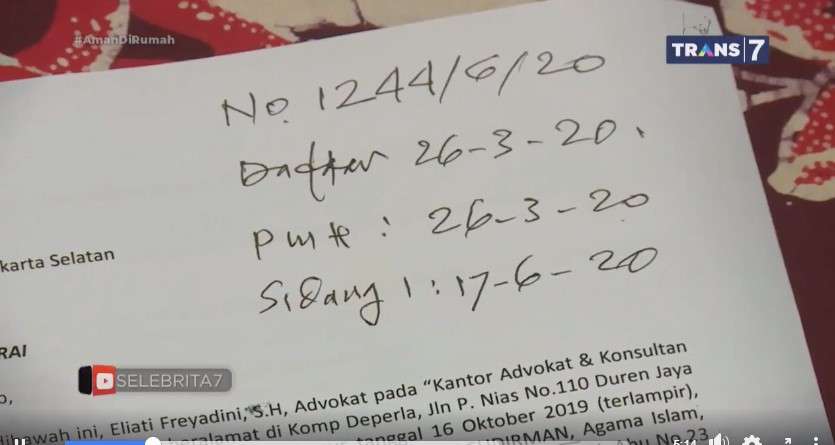 #AmanDiRumah
TRANS|7
No. 1244/G/20
Daftar 26-3-20.
PMH : 26-3-20
Sidang 1 : 17-6-20
karta Selatan
RAI
SELEBRITA7
dibawah ini, Eliati Freyadini, S.H, Advokat pada "Kantor Advokat & Konsultan
beralamat di Komp Deperla, Jln P. Nias No.110 Duren Jaya
tanggal 16 Oktober 2019 (terlampir),
Agama Islam,
No.23
5:14